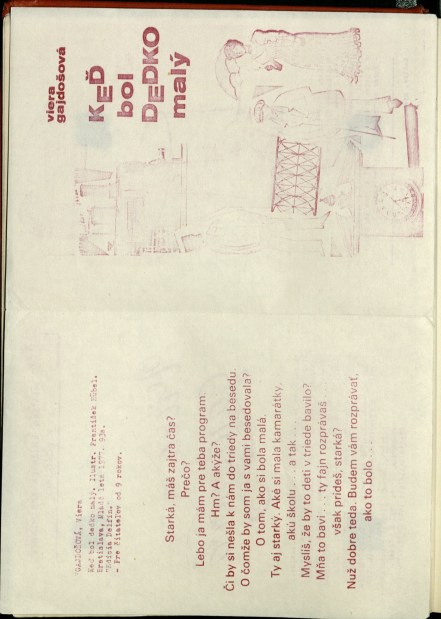 viera
gajdošová
KEĎ
bol
DEDKO
malý
GAJDOŠOVÁ, Viera
Keď bol dedko malý. Ilustr. František Hübel.
Bratislava, Mladé letá 93s.
- Pre čitateľov od 9 rokov.
Starká, máš zajtra čas?
Prečo?
Lebo ja mám pre teba program.
Hm? A akýže?
Či by si nešla k nám do triedy na besedu.
O čomže by som ja s vami besedovala?
O tom, ako si bola malá.
Ty aj starký. Aké si mala kamarátky,
akú školu ... a tak ...
Myslíš, že by to deti v triede bavilo?
Mňa to baví ... ty fajn rozprávaš
však prídeš, starká?
Nuž dobre teda. Budem vám rozprávať,
ako to bolo ...